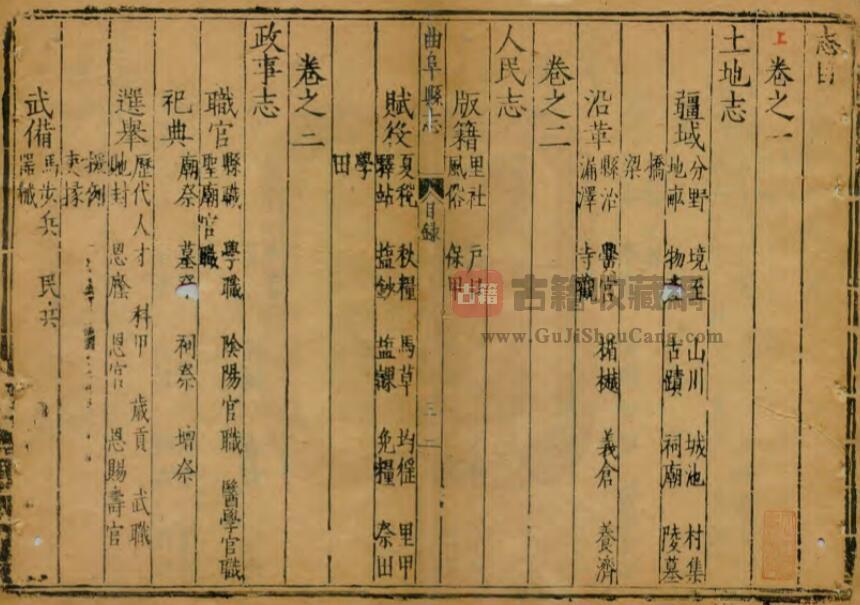 志目
上
卷之一
土地志
疆域 分野 境至 山川 城池 村集
地畝 物産 古蹟 祠廟 陵墓
橋
梁
沿革 縣治 黌官 楯樾 義倉 養濟
漏澤 寺觀
卷之二
人民志
版籍 里社 戶
風俗 保甲
曲阜縣志
目錄
賦役 夏稅 秋糧 馬草 均徭 里甲
驛站 塩鈔 塩課 免糧 祭田
學
田
卷之二
政事志
職官 縣職 學職 陰陽官職 醫學官職
聖廟官職
祀典 廟祭 墓祭 祠祭 壇祭
選舉 歷代人才 科甲 歲貢 武職
馳封 恩廕 恩官 恩賜壽官
援例
吏掾
武備 馬步兵 民兵
器械
古籍 古籍收藏
www.GuJiShouCang.com